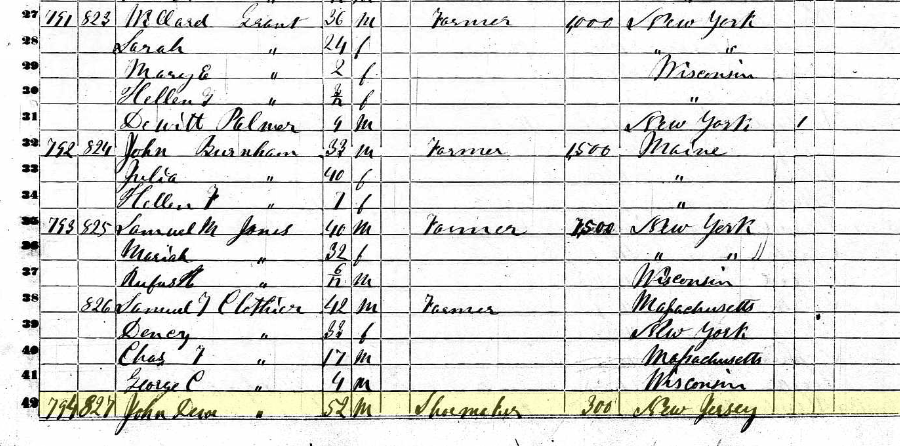 27 791 823 Willard Grant 36 M Farmer 1,000 New York
28 Sarah " 24 f " "
29 Mary E " 2 f Wisconsin
30 Hellen " f "
31 Dewitt Palmer 9 M New York 1
32 792 824 John Burnham 33 M Farmer 1,500 Maine
33 Julia 40 f "
34 Hellen F " f "
35 793 825 Samuel M Jones 40 M Farmer New York
36 Mariah " 32 f " "
37 Rufus " 6/12 M Wisconsin
38 826 Samuel T Clothier 42 M Farmer Massachusetts
39 " 33 f New York
40 Chas T " 17 M Massachusetts
41 George C " 4 M Wisconsin
794 827 John " 52 M Shoemaker 300 New Jersey